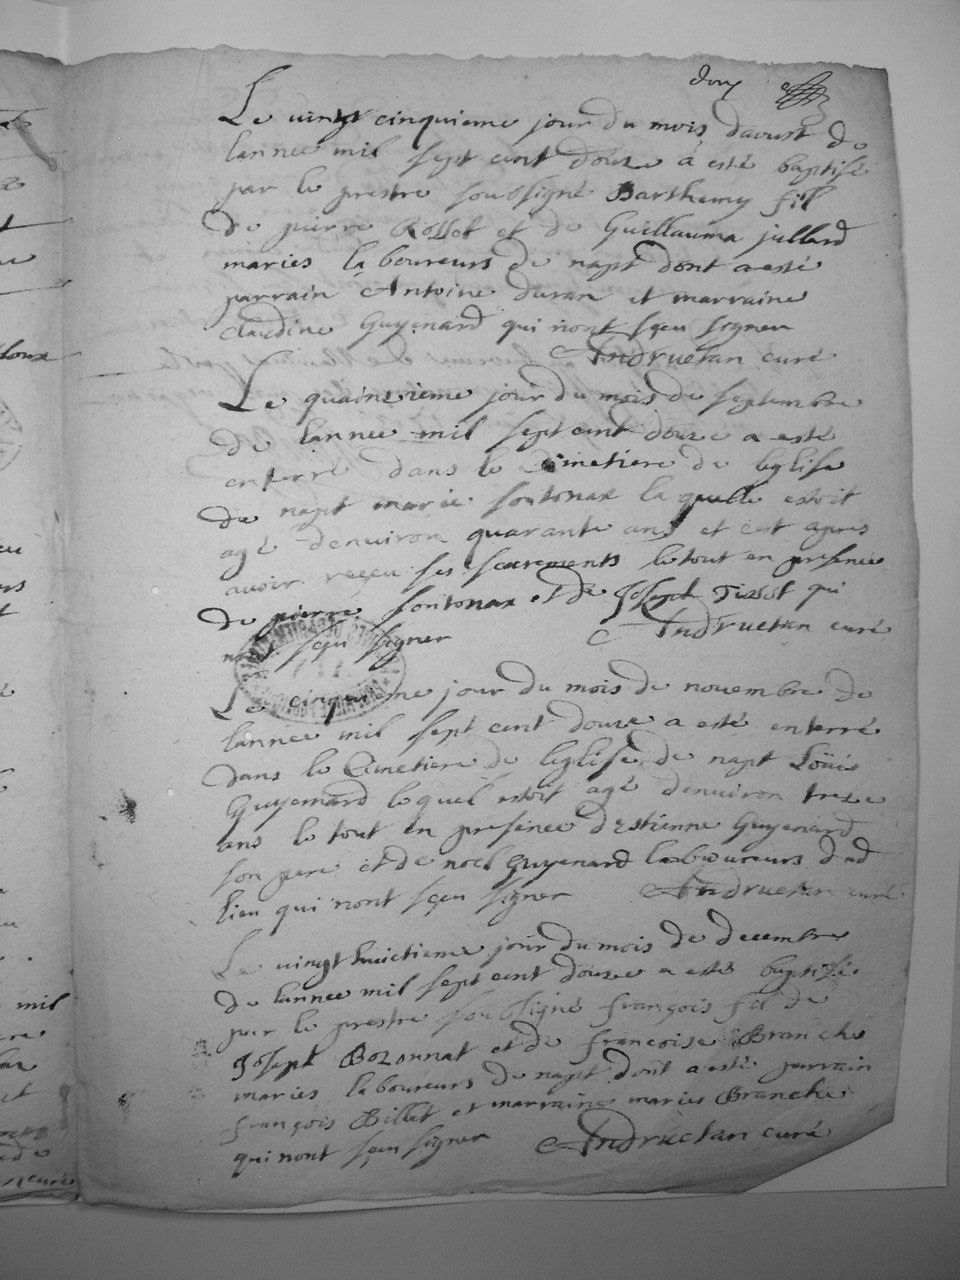 Le vingt cinquieme jour du mois daoust de
lannee mil sept cent douze a esté baptisé
par le prestre soubsigné Barthemy fil
de pierre Rosset et de Guillauma jullard
mariés laboureurs de napt dont a esté
parrain Antoine duran et marraine
claudine Guyenard qui nont sçeu signer
Andruetan curé
Le quainzieme jour du mois de septembre
de lannee mil sept cent douze a esté
enterré dans le Cimetiere de leglise
de napt marie fontonax la quelle estoit
agé denuiron quarante ans et cest apres
auoir reçeu ses sacrements le tout en presence
de pierre fontonax et de Joseph Tissot qui
nont sçeu signer Andruetan curé
Le cinquieme jour du mois de nouembre de
lannee mil sept cent douze a esté enterré
dans le Cimetiere de leglise de napt Loüis
Guyenard lequel estoit agé denuiron treze
ans le tout en presence destienne Guyenard
son pere et de noel Guyenard laboureurs dud
lieu qui nont sçeu signer Andruetan curé
Le vingt huictieme jour du mois de decembre
de lannee mil sept cent douze a esté baptisé
par le prestre soubsigné françois fil de
Joseph Bozonnat et de francoise Branche
mariés laboureurs de napt dont a esté parrain
françois Billet et marraine marie Branche
qui nont sçeu signer Andruetan curé